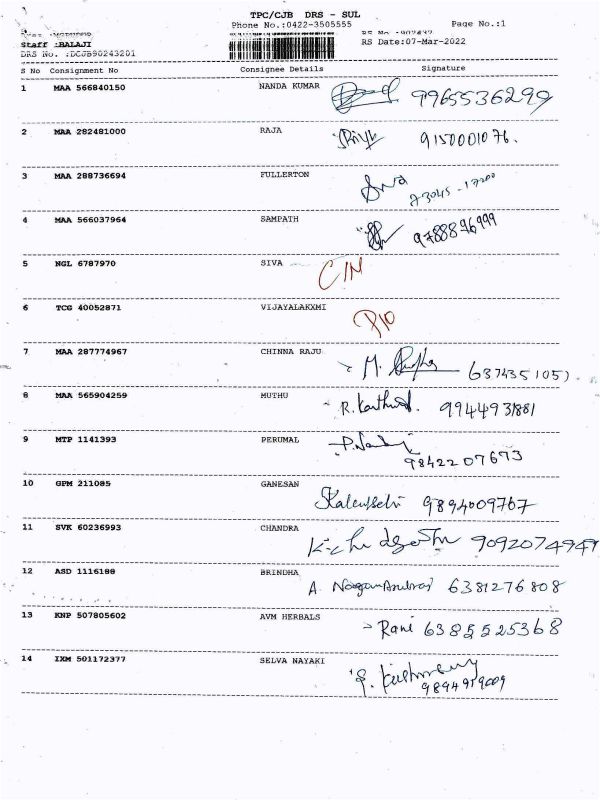 TPC/CJB DRS - SUL
Phone No.:0422-3505555 Page No.:1
Staff :BALAJI RS Date:07-Mar-2022
DRS No. :DCJB90243201
S No Consignment No Consignee Details Signature
1 MAA 566840150 NANDA KUMAR 9965536299
2 MAA 282481000 RAJA 9150001076.
3 MAA 288736694 FULLERTON Siva
73045-17200
4 MAA 566037964 SAMPATH 9788896999
5 NGL 6787970 SIVA C/N
6 TCG 40052871 VIJAYALAKXMI P10
7 MAA 287774967 CHINNA RAJU M.
8 MAA 565904259 MUTHU R. Karthick. 9944931881
9 MTP 1141393 PERUMAL
9842207673
10 GPM 211085 GANESAN Kalaiselvi 9894009767
11 SVK 60236993 CHANDRA 9092074949
12 ASD 1116188 BRINDHA A. 6381276808
13 KNP 507805602 AVM HERBALS Rani 6385525368
14 IXM 501172377 SELVA NAYAKI